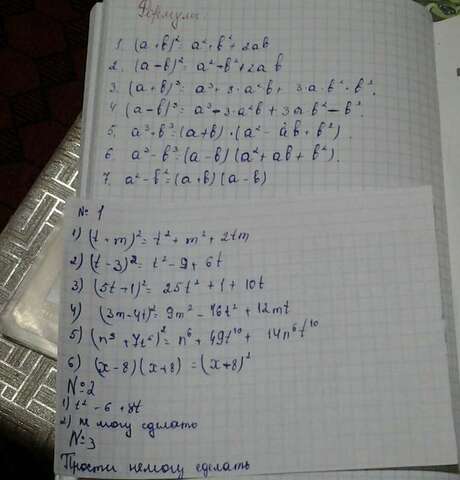 Формулы
1. (a+b)² = a²+b²+2ab
2. (a-b)² = a²-b²+2ab
3. (a+b)³ = a³+3·a²b+3·a·b²+b³.
4 (a-b)³ = a³-3·a²b+3ab²-b³.
5. a³+b³=(a+b)·(a²-ab+b²)
6. a³-b³=(a-b)(a²+ab+b²).
7. a²-b²=(a+b)(a-b)
№1
1) (t+m)²= t²+m²+2tm
2) (t-3)²= t²-9+6t
3) (5t+1)²= 25t²+1+10t
4) (3m-4t)²= 9m²-16t²+12mt
5) (n³+7t⁵)²= n⁶+49t¹⁰+14n⁶t¹⁰
6) (x-8)(x+8)=(x+8)²
№2
1) t²-6+8t
2) не могу сделать
№3
Прости немогу сделать